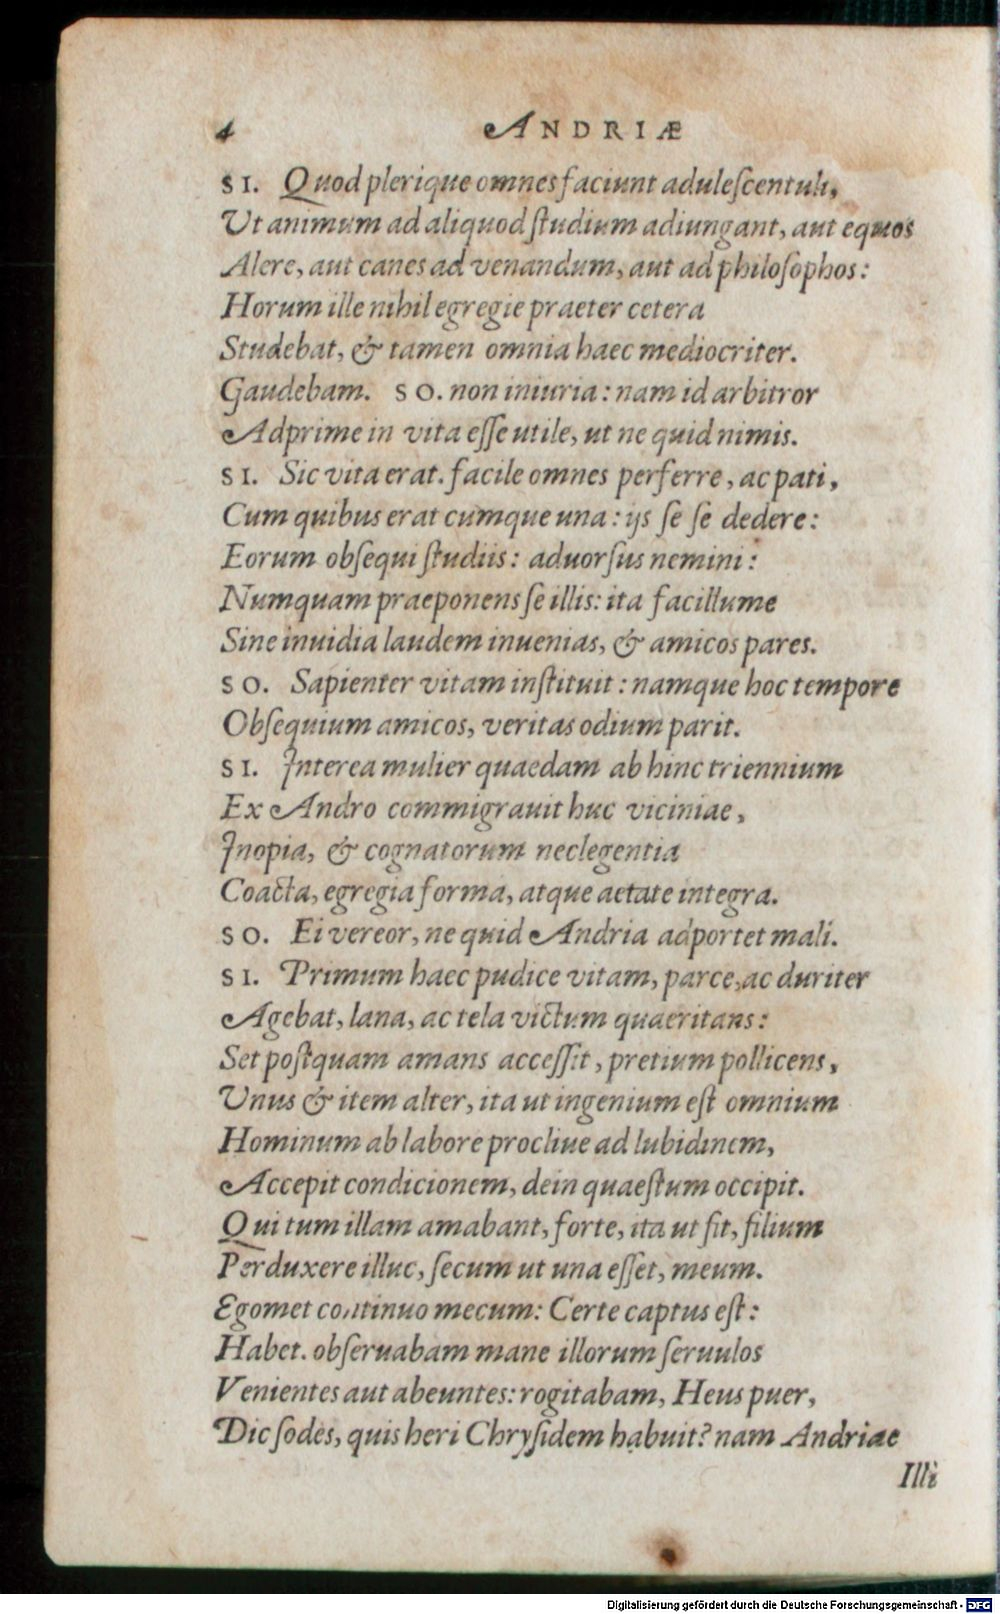 4 ANDRIÆ
SI. Quod plerique omnes faciunt aduleſcentuli,
Ut animum ad aliquod ſtudium adiungant, aut equos
Alere, aut canes ad venandum, aut ad philoſophos:
Horum ille nihil egregie praeter cetera
Studebat, & tamen omnia haec mediocriter.
Gaudebam. SO. non iniuria: nam id arbitror
Adprime in vita eſſe utile, ut ne quid nimis.
SI. Sic vita erat. facile omnes perferre, ac pati,
Cum quibus erat cumque una: ijs ſe ſe dedere:
Eorum obſequi ſtudiis: aduorſus nemini:
Numquam praeponens ſe illis: ita facillume
Sine inuidia laudem inuenias, & amicos pares.
SO. Sapienter vitam inſtituit: namque hoc tempore
Obſequium amicos, veritas odium parit.
SI. Interea mulier quaedam ab hinc triennium
Ex Andro commigrauit huc viciniae,
Inopia, & cognatorum neclegentia
Coacta, egregia forma, atque aetate integra.
SO. Ei vereor, ne quid Andria adportet mali.
SI. Primum haec pudice vitam, parce, ac duriter
Agebat, lana, ac tela victum quaeritans:
Set poſtquam amans acceſſit, pretium pollicens,
Unus & item alter, ita ut ingenium eſt omnium
Hominum ab labore procliue ad lubidinem,
Accepit condicionem, dein quaeſtum occipit.
Qui tum illam amabant, forte, ita ut fit, filium
Perduxere illuc, ſecum ut una eſſet, meum.
Egomet continuo mecum: Certe captus eſt:
Habet. obſeruabam mane illorum ſeruulos
Venientes aut abeuntes: rogitabam, Heus puer,
Dic ſodes, quis heri Chryſidem habuit? nam Andriae
Illi
Digitalisierung gefördert durch die Deutsche Forschungsgemeinschaft - DFG